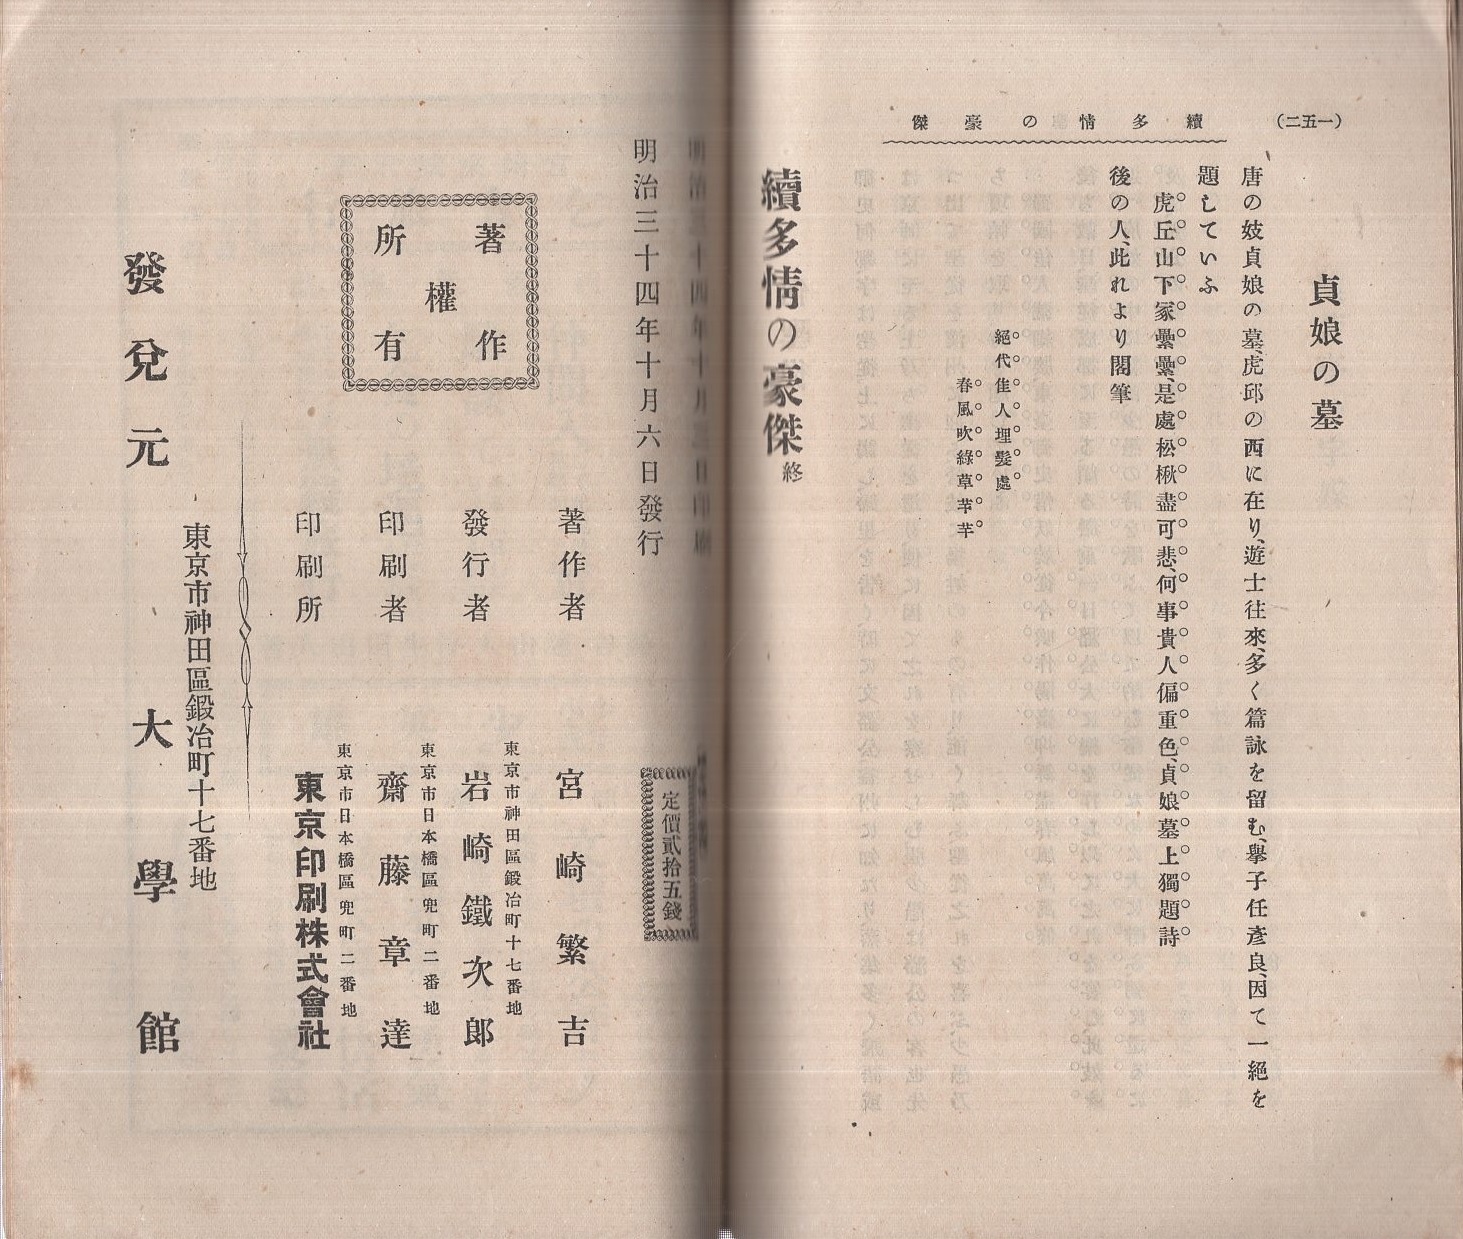 （一五二）
續多情の豪傑
貞娘の墓
唐の妓貞娘の墓、虎邱の西に在り、遊士往來、多く篇詠を留む、擧子任彥良、因て一絕を
題していふ
虎丘山下冢纍纍、是處松楸盡可悲、何事貴人偏重色、貞娘墓上獨題詩
後の人、此れより閣筆
絕代佳人埋髮處
春風吹綠草芊芊
續多情の豪傑終
明治三十四年十月六日發行
定價貳拾五錢
著作權所有
著作者 宮崎繁吉
東京市神田區鍛冶町十七番地
發行者 岩崎鐵次郎
東京市日本橋區兜町二番地
印刷者 齋藤章達
東京市日本橋區兜町二番地
印刷所 東京印刷株式會社
東京市神田區鍛冶町十七番地
發兌元 大學館